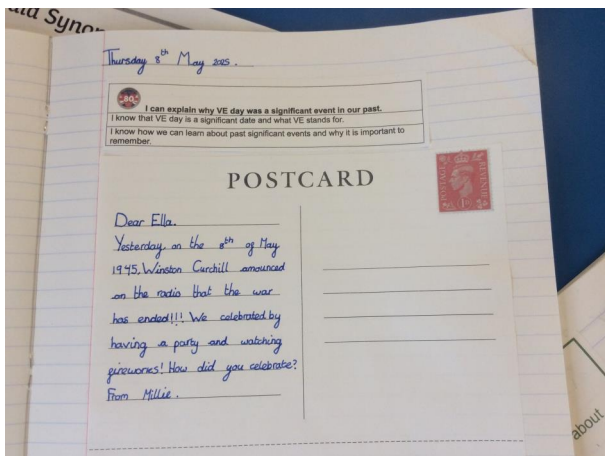 ald Synon
Thursday 8th May 2025.
80
I can explain why VE day was a significant event in our past.
I know that VE day is a significant date and what VE stands for.
I know how we can learn about past significant events and why it is important to
remember.
POSTCARD
POSTAGE
REVENUE
Dear Ella.
Yesterday, on the 8th of May
1945, Winston Curchill amounced
on the radio that the war
has ended!!! We celebrated by
having a party and watching
fireworks! How did you celebrate?
From Millie.
about